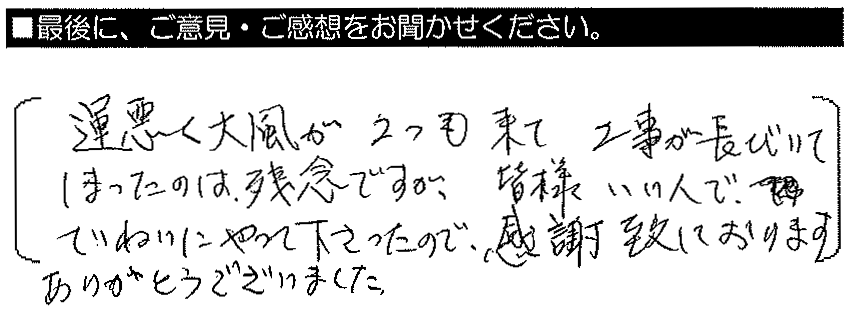 ■最後に、ご意見・ご感想をお聞かせください。
運悪く大風が2つも来て工事が長びいて
しまったのは、残念ですが、皆様いい人で、
ていねいにやって下さったので、感謝致しております
ありがとうございました。